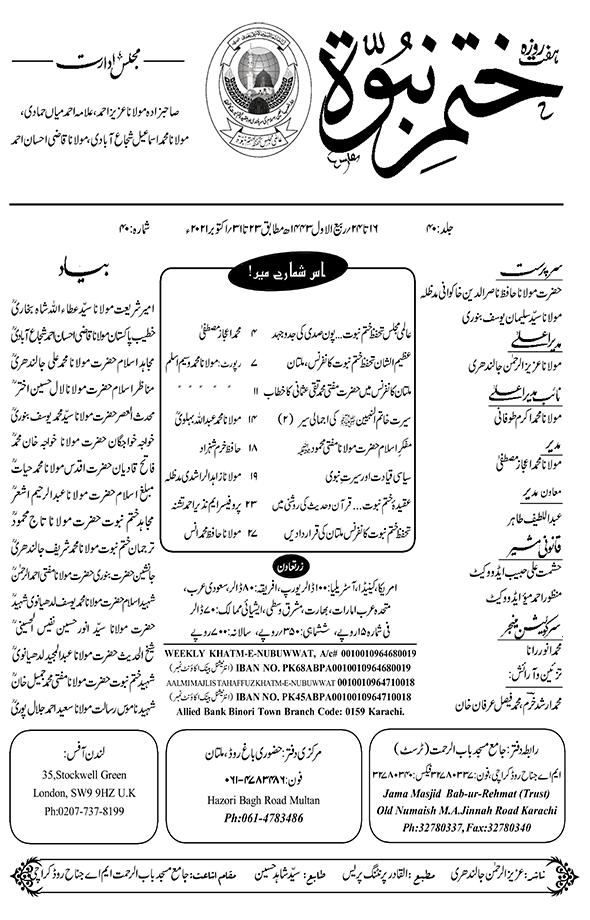 ہفت روزہ
ختم نبوّۃ
مجلس ادارت
صاحبزادہ مولانا عزیز احمد، علامہ احمد میاں حمادی،
مولانا محمد اسماعیل شجاع آبادی، مولانا قاضی احسان احمد
جلد:۴۰
۱۶ تا ۲۴/ربیع الاول ۱۴۴۳ھ مطابق ۲۳ تا ۳۱/اکتوبر ۲۰۲۱ء
شمارہ:۴۰
سرپرست
حضرت مولانا حافظ ناصر الدین خاکوانی مدظلہ
مولانا سیّد سلیمان یوسف بنوری
مدیر اعلیٰ
مولانا عزیز الرحمٰن جالندھری
نائب مدیر اعلیٰ
مولانا محمد اکرم طوفانی
مدیر
مولانا محمد اعجاز مصطفیٰ
معاون مدیر
عبداللطیف طاہر
قانونی مشیر
حشمت علی حبیب ایڈووکیٹ
منظور احمد میؤ ایڈووکیٹ
سرکولیشن منیجر
محمد انور رانا
تزئین و آرائش:
محمد ارشد خرم، محمد فیصل عرفان خان
اس شمارے میں!
عالمی مجلس تحفظ ختم نبوت... پون صدی کی جدوجہد ۴ محمد اعجاز مصطفیٰ
عظیم الشان تحفظ ختم نبوت کانفرنس، ملتان ۷ رپورٹ: مولانا محمد وسیم اسلم
ملتان کانفرنس میں حضرت مفتی محمد تقی عثمانی کا خطاب ۱۱ " " " " "
سیرت خاتم النبیین ﷺ کی اجمالی سیر (۲) ۱۴ مولانا محمد عبداللہ بہلویؒ
مفکر اسلام حضرت مولانا مفتی محمودؒ ۱۸ حافظ خرم شہزاد
سیاسی قیادت اور سیرت نبوی ۱۹ مولانا زاہد الراشدی مدظلہ
عقیدۂ ختم نبوت... قرآن و حدیث کی روشنی میں ۲۳ پروفیسر ایم نذیر احمد تشنہ
تحفظ ختم نبوت کانفرنس ملتان کی قراردادیں ۲۷ مولانا حافظ محمد انس
زرتعاون
امریکا، کینیڈا، آسٹریلیا: ۱۰۰ ڈالر یورپ، افریقہ: ۸۰ ڈالر، سعودی عرب،
متحدہ عرب امارات، بھارت، مشرق وسطیٰ، ایشیائی ممالک: ۷۰ ڈالر
فی شمارہ ۱۵ روپے، ششماہی: ۳۵۰ روپے، سالانہ: ۷۰۰ روپے
WEEKLY KHATM-E-NUBUWWAT, A/c# 0010010964680019
IBAN NO. PK68ABPA0010010964680019 (انٹرنیشنل بینک اکاؤنٹ نمبر)
AALMIMAJLISTAHAFFUZKHATM-E-NUBUWWAT 0010010964710018
IBAN NO. PK45ABPA0010010964710018 (انٹرنیشنل بینک اکاؤنٹ نمبر)
Allied Bank Binori Town Branch Code: 0159 Karachi.
بیاد
امیر شریعت مولانا سیّد عطاء اللہ شاہ بخاریؒ
خطیب پاکستان مولانا قاضی احسان احمد شجاع آبادیؒ
مجاہد اسلام حضرت مولانا محمد علی جالندھریؒ
مناظر اسلام حضرت مولانا لال حسین اخترؒ
محدث العصر حضرت مولانا سیّد محمد یوسف بنوریؒ
خواجہ خواجگان حضرت مولانا خواجہ خان محمدؒ
فاتح قادیان حضرت اقدس مولانا محمد حیاتؒ
مبلغ اسلام حضرت مولانا عبدالرحیم اشعرؒ
مجاہد ختم نبوت حضرت مولانا تاج محمودؒ
ترجمان ختم نبوت مولانا محمد شریف جالندھریؒ
جانشین حضرت بنوری حضرت مولانا مفتی احمد الرحمٰنؒ
شہید اسلام حضرت مولانا محمد یوسف لدھیانوی شہیدؒ
حضرت مولانا سیّد انور حسین نفیس الحسینیؒ
شیخ الحدیث حضرت مولانا عبدالمجید لدھیانویؒ
شہید ختم نبوت حضرت مولانا مفتی محمد جمیل خانؒ
شہید ناموس رسالت مولانا سعید احمد جلال پوریؒ
رابطہ دفتر: جامع مسجد باب الرحمت (ٹرسٹ)
ایم اے جناح روڈ کراچی، فون: ۳۲۷۸۰۳۳۷ فیکس: ۳۲۷۸۰۳۴۰
Jama Masjid Bab-ur-Rehmat (Trust)
Old Numaish M.A.Jinnah Road Karachi
Ph:32780337, Fax:32780340
مرکزی دفتر: حضوری باغ روڈ، ملتان
فون: ۰۶۱-۴۷۸۳۴۸۶
Hazori Bagh Road Multan
Ph:061-4783486
لندن آفس:
35,Stockwell Green
London, SW9 9HZ U.K
Ph:0207-737-8199
ناشر: عزیز الرحمٰن جالندھری مطبع: القادر پرنٹنگ پریس طابع: سیّد شاہد حسین مقام اشاعت: جامع مسجد باب الرحمت ایم اے جناح روڈ کراچی